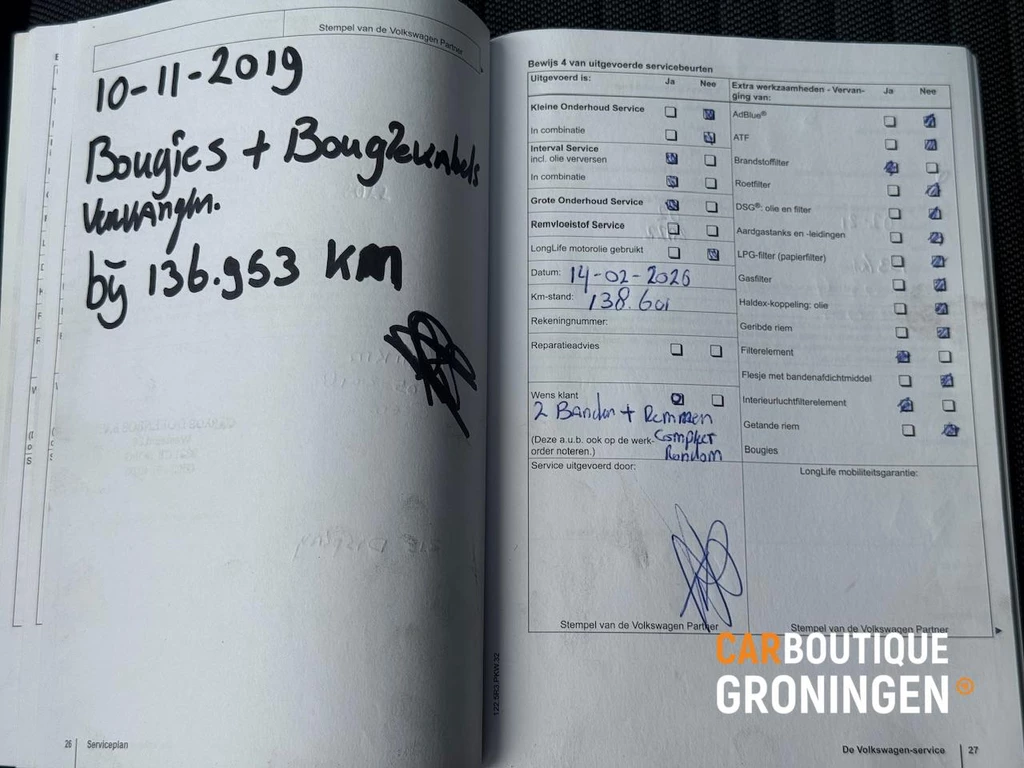 Stempel van de Volkswagen Partner
10-11-2019
Bougies + Bougiekabels
Vervangen.
bij 136.953 km
26 Serviceplan
Bewijs 4 van uitgevoerde servicebeurten
Uitgevoerd is: Ja Nee
Kleine Onderhoud Service
In combinatie
Interval Service
incl. olie verversen
In combinatie
Grote Onderhoud Service
Remvloeistof Service
LongLife motorolie gebruikt
Datum: 14-02-2020
Km-stand: 138.601
Rekeningnummer:
Reparatieadvies
Wens klant
2 Banden + Remmen
Compleet
Rondom
(Deze a.u.b. ook op de werk-
order noteren.)
Extra werkzaamheden - Vervan- Ja Nee
ging van:
AdBlue®
ATF
Brandstoffilter
Roetfilter
DSG®: olie en filter
Aardgastanks en -leidingen
LPG-filter (papierfilter)
Gasfilter
Haldex-koppeling: olie
Geribde riem
Filterelement
Flesje met bandenafdichtmiddel
Interieurluchtfilterelement
Getande riem
Bougies
Service uitgevoerd door:
LongLife mobiliteitsgarantie:
Stempel van de Volkswagen Partner
Stempel van de Volkswagen Partner
122.5R3.PKW.32
CARBOUTIQUE
GRONINGEN
De Volkswagen-service 27